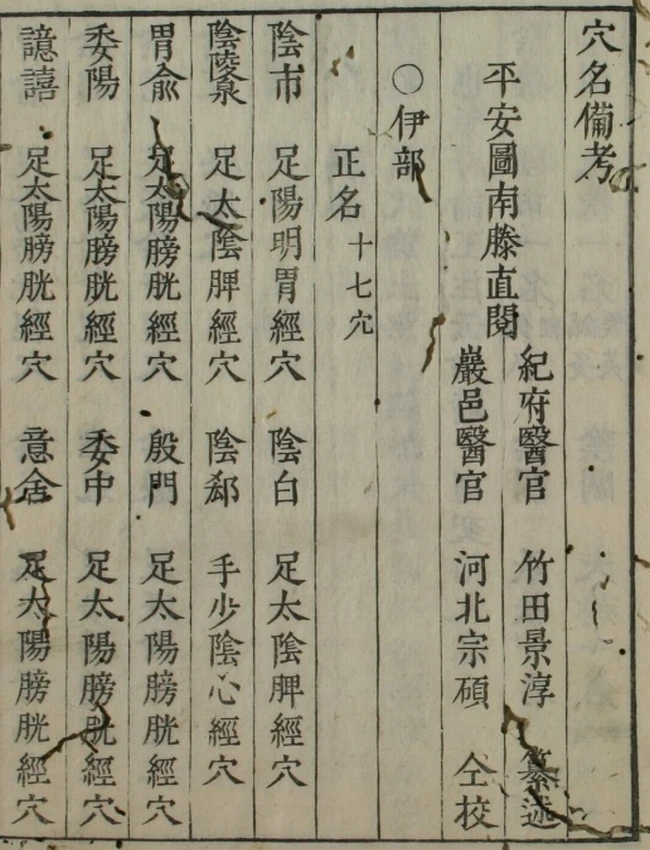 穴名備考
平安圖南滕直閱
紀府醫官 竹田景淳 纂述
巖邑醫官 河北宗碩 仝校
○伊部
正名十七穴
陰市 足陽明胃經穴 陰白 足太陰脾經穴
陰陵泉 足太陰脾經穴 陰郄 手少陰心經穴
胃兪 足太陽膀胱經穴 殷門 足太陽膀胱經穴
委陽 足太陽膀胱經穴 委中 足太陽膀胱經穴
譩譆 足太陽膀胱經穴 意舍 足太陽膀胱經穴